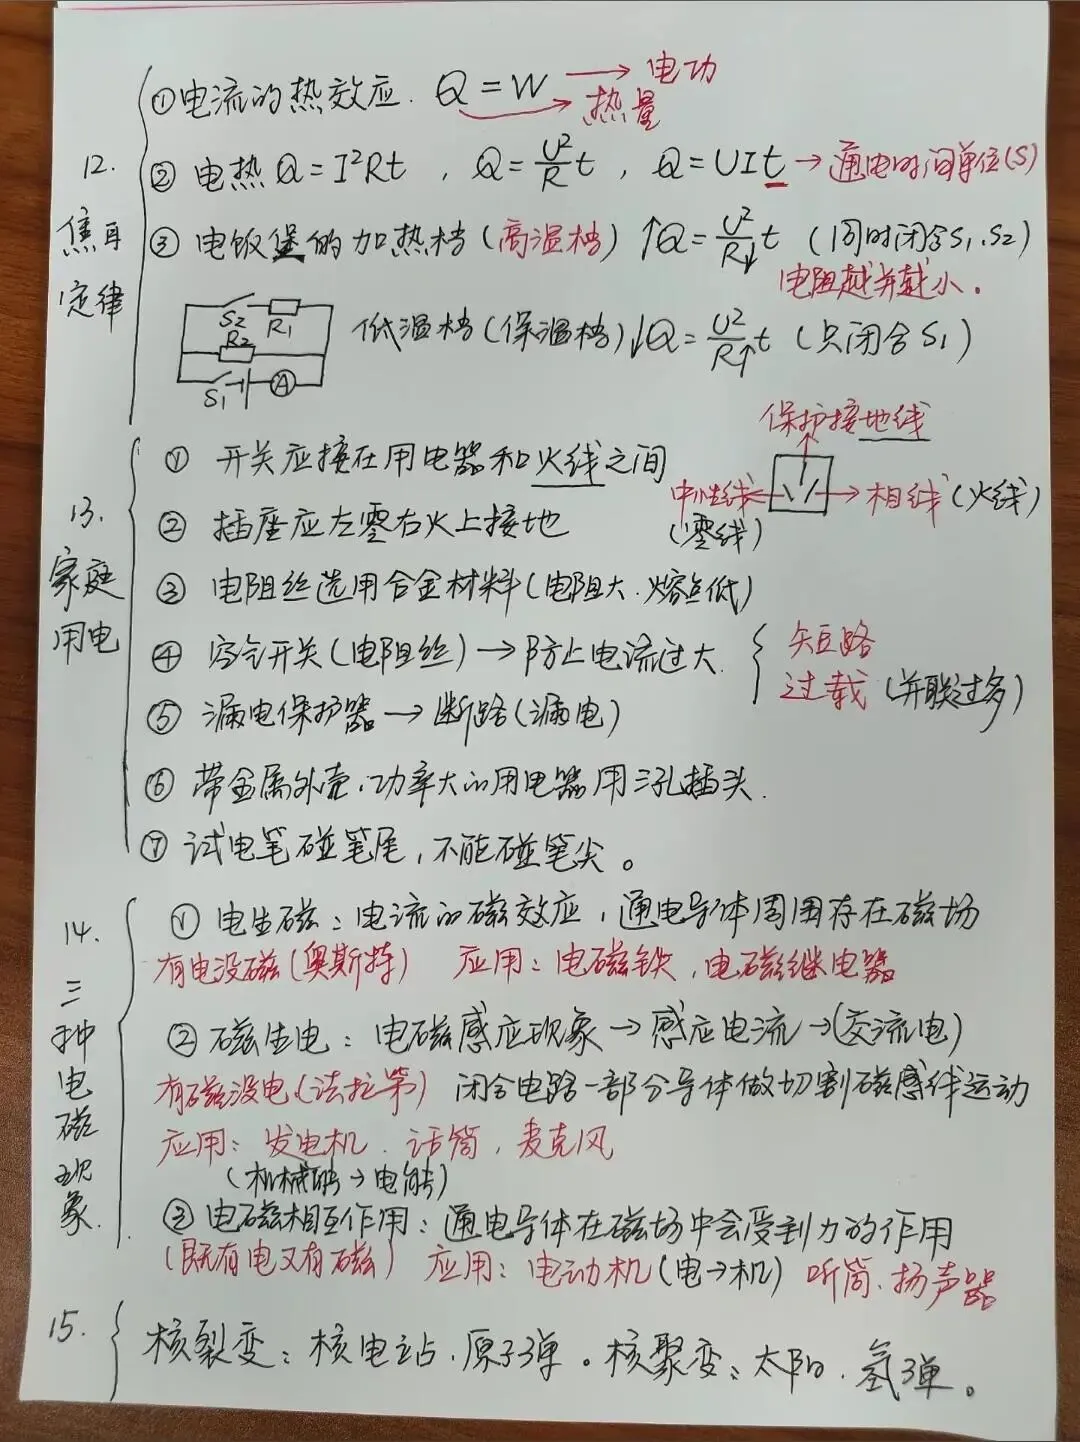 12. 焦耳定律
①电流的热效应. Q=W → 电功
→ 热量
② 电热 Q=I²Rt , Q=U²/R t , Q=UIt → 通电时间单位(S)
③ 电饭堡的加热档(高温档) ↑Q=U²/R↓ t (同时闭合S₁.S₂)
电阻越并越小.
S₂ R₁
R₂
S₁ A
低温档(保温档)↓Q=U²/R↑ t (只闭合S₁)
13. 家庭用电
① 开关应接在用电器和火线之间
保护接地线
中性线 ← → 相线(火线)
(零线)
② 插座应左零右火上接地
③ 电阻丝选用合金材料(电阻大.熔点低)
④ 空气开关(电阻丝)→防止电流过大.
短路
过载(并联过多)
⑤ 漏电保护器→断路(漏电)
⑥ 带金属外壳.功率大的用电器用三孔插头.
⑦ 试电笔碰笔尾,不能碰笔尖。
14. 三种电磁现象.
① 电生磁:电流的磁效应,通电导体周围存在磁场
有电没磁(奥斯特) 应用:电磁铁,电磁继电器
② 磁生电:电磁感应现象→感应电流→(交流电)
有磁没电(法拉第) 闭合电路一部分导体做切割磁感线运动
应用:发电机.话筒,麦克风
(机械能→电能)
③ 电磁相互作用:通电导体在磁场中会受到力的作用
(既有电又有磁) 应用:电动机(电→机) 听筒.扬声器
15. 核裂变:核电站.原子弹。核聚变:太阳.氢弹。